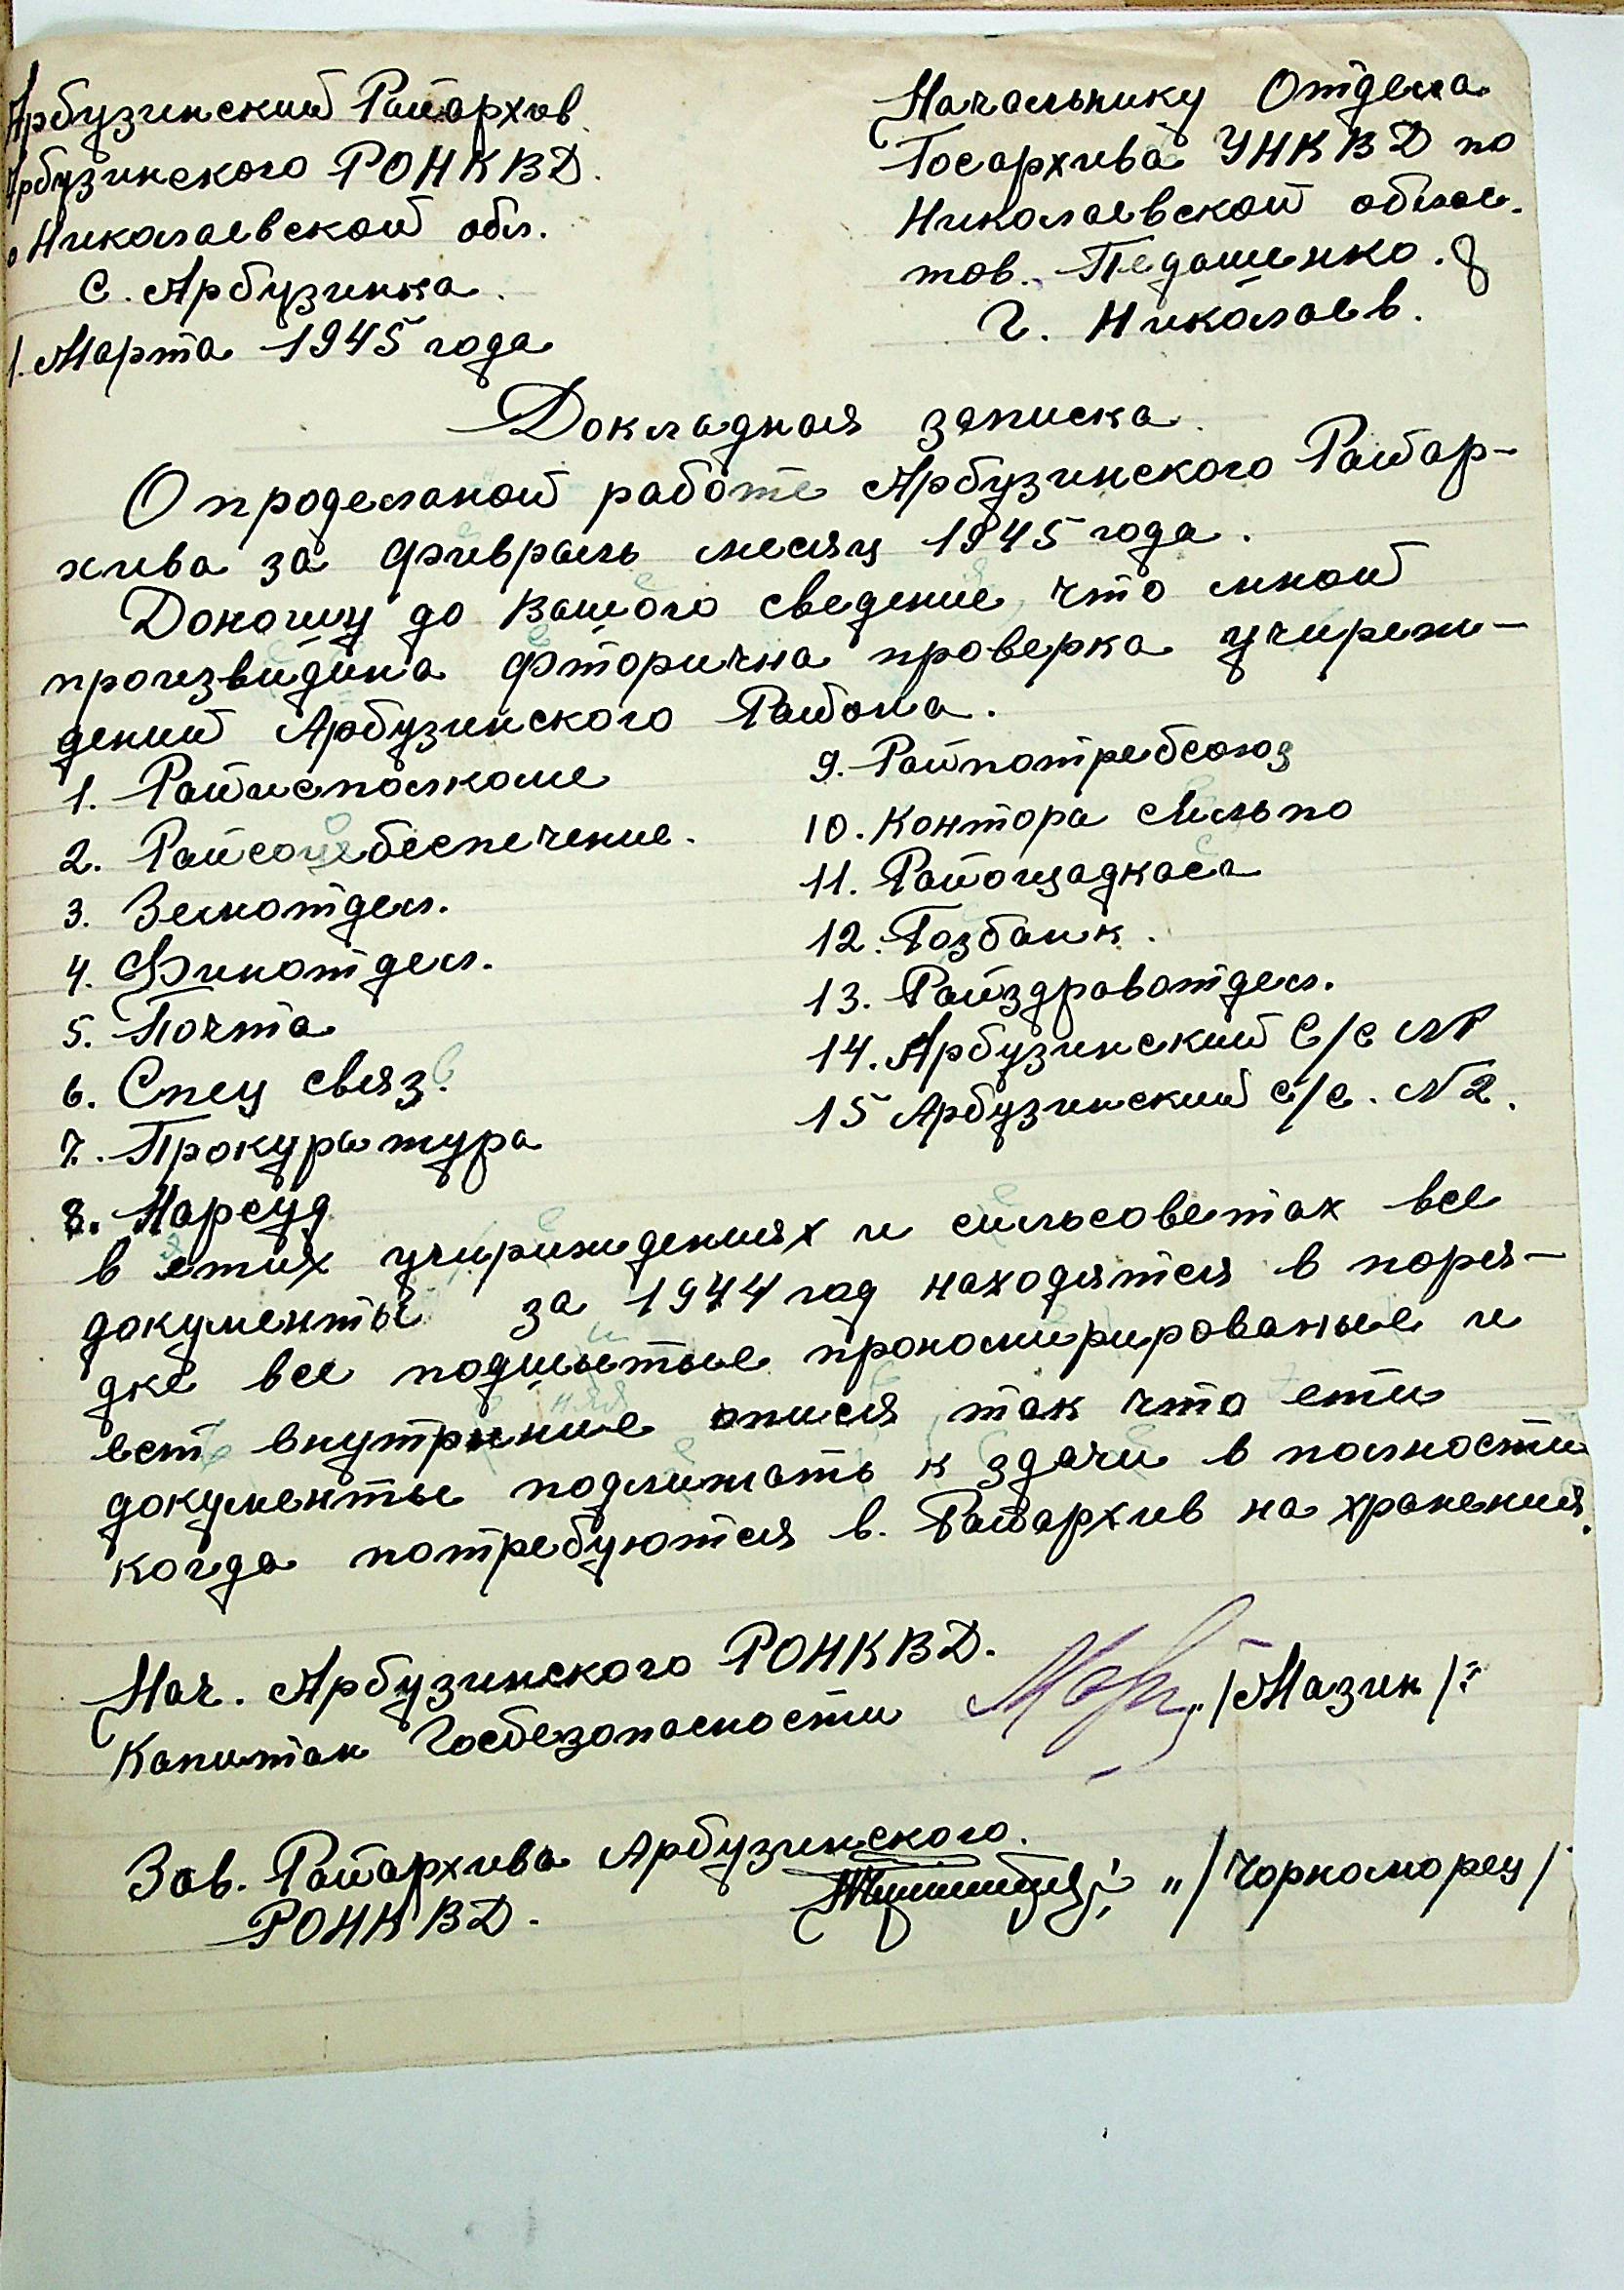 Арбузинский Райархив
Арбузинского РОНКВД.
Николаевской обл.
с. Арбузинка.
1. Марта 1945 года
Начальнику Отдела
Госархива УНКВД по
Николаевской облас.
тов. Педашенко.
г. Николаев.
Докладная записка.
О проделаной работе Арбузинского Райар-
хива за фивраль месяц 1945 года.
Доношу до Вашого сведение, что мной
произвидина фторична проверка учиреж-
дений Арбузинского Района.
1. Райисполкоме
2. Райсоцебеспечение.
3. Земотдел.
4. Финотдел.
5. Почта
6. Спец связ.
7. Прокуратура
8. Нарсуд
9. Райпотребсоюз
10. Контора Сильпо
11. Райощадкаса
12. Гозбанк.
13. Райздравотдел.
14. Арбузинский С/С №1
15 Арбузинский С/С. №2.
в этих учириждениях и сильсоветах все
документы за 1944 год находятся в поря-
дке все подшытые прономирированые и
ест внутрение опися так что ети
документы подлижать к здачи в полности
когда потребуются в. Райархив на хранения.
Нач. Арбузинского РОНКВД.
Капитан Госбезопасности „/Мазин/:
Зав. Райархива Арбузинского.
РОНКВД. „/Чорноморец/